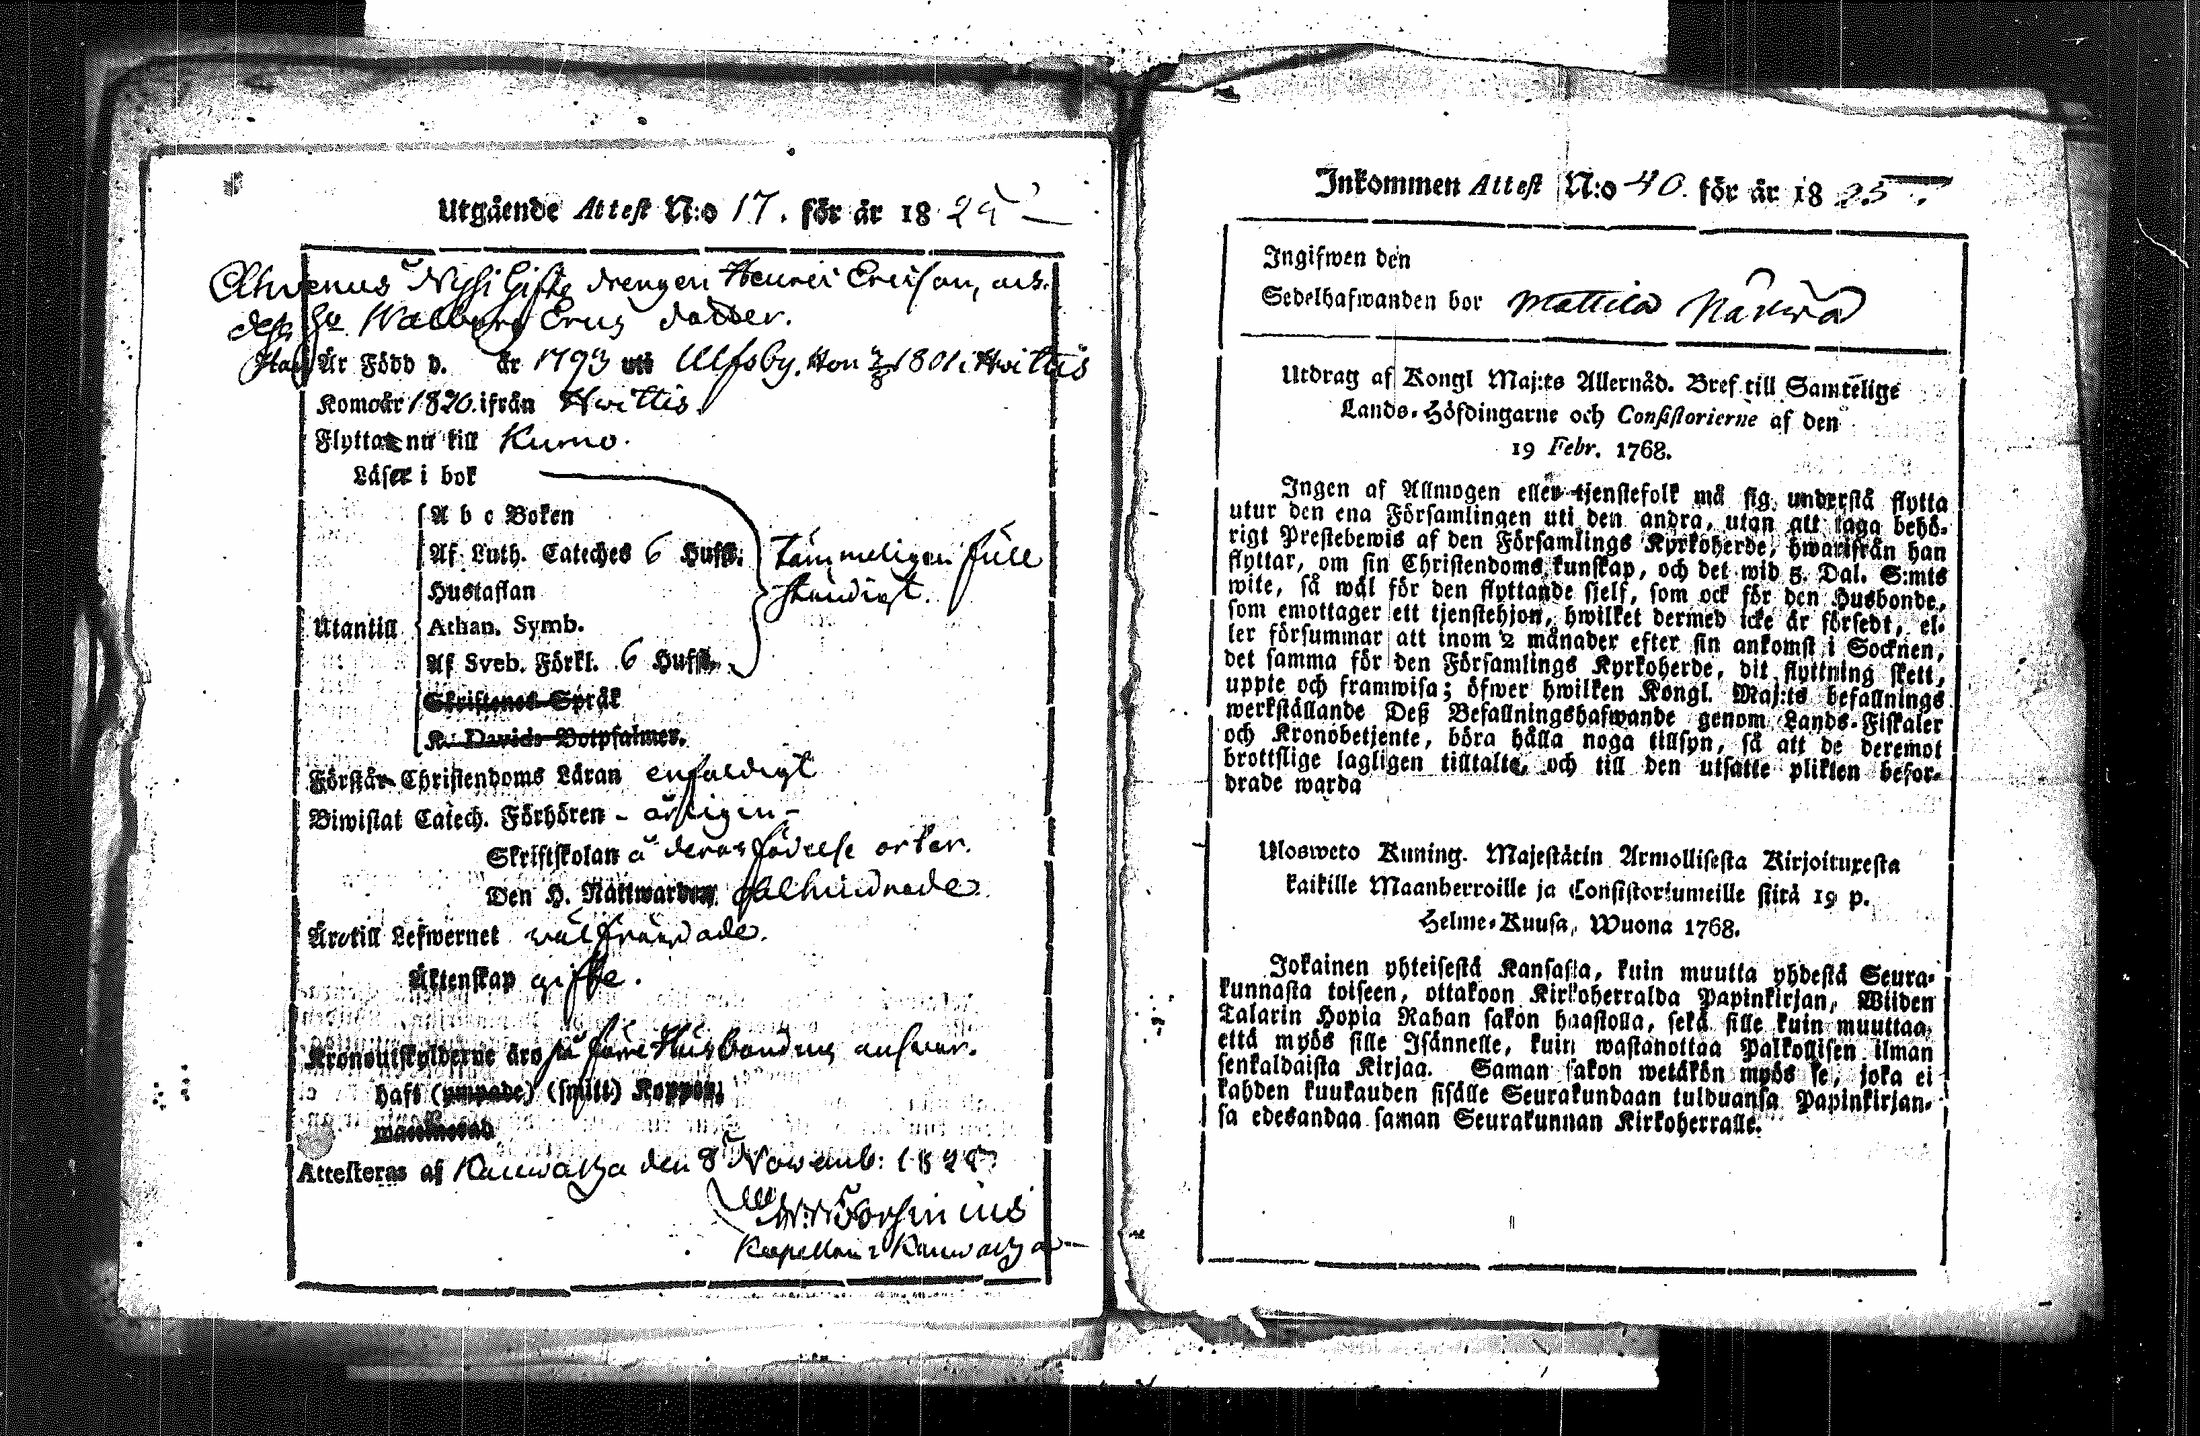 Utgående Attest N:o 17. för år 18 25
Ahvenus Nissi Gifte drengen Henric Ericson, och
dess Hu Walborg Erics dotter.
Han Är Född d. år 1793 uti Ulfsby. Hon 1801 i Hwittis
Komo år 1820. ifrån Hwittis.
Flytta nu till Kumo.
Läsa i bok
A b c Boken
Af Luth. Cateches 6 Hufst. Tämmeligen full
Hustaflan ständigt.
Utantill Athan. Symb.
Af Sveb. Förkl. 6 Hufst.
Skriftenes Språk
K. Davids Botpsalmer.
Förstå Christendoms Läran enfaldigt
Biwistat Catech. Förhören - årligen -
Skriftskolan å deras födelse orter.
Den H. Nattwarden
Äro till Lefwernet wälfräjdade.
Äktenskap gifte.
Kronoutskylderne äro på förre Husbondens answar.
haft (ympade) (smitt) Koppor,
Attesteras af Kauwatsa den 8 Novemb: 1825
Kapellan i Kauwatsa
Inkommen Attest N:o 40. för år 18 25.
Ingifwen den
Sedelhafwanden bor Mattila Närwä
Utdrag af Kongl Maj:ts Allernåd. Bref till Samtelige
Lands-Höfdingarne och Consistorierne af den
19 Febr. 1768.
Ingen af Allmogen eller tjenstefolk må sig understå flytta
utur den ena Församlingen uti den andra, utan att taga behö-
rigt Prestebewis af den Församlings Kyrkoherde, hwarifrån han
flyttar, om sin Christendoms kunskap, och det wid 5 Dal. S:mts
wite, så wäl för den flyttande sjelf, som ock för den Husbonde,
som emottager ett tjenstehjon, hwilket dermed icke är försedt, el-
ler försummar att inom 2 månader efter sin ankomst i Socknen,
det samma för den Församlings Kyrkoherde, dit flyttning skett,
uppte och framwisa; öfwer hwilken Kongl. Maj:ts befallnings
werkställande Deß Befallningshafwande genom Lands-Fiskaler
och Kronobetjente, böra hålla noga tillsyn, så att de deremot
brottslige lagligen tilltalte, och till den utsatte plikten befor-
drade warda
Ulosweto Kuning. Majestätin Armollisesta Kirjoituxesta
kaikille Maanherroille ja Consistoriumeille siitä 19 p.
Helme-Kuusa, Wuona 1768.
Jokainen yhteisestä Kansasta, kuin muutta yhdestä Seura-
kunnasta toiseen, ottakoon Kirkoherralda Papinkirjan, Wiiden
Talarin Hopia Rahan sakon haastolla, sekä sille kuin muuttaa,
että myös sille Isännelle, kuin wastanottaa Palkollisen ilman
senkaldaista Kirjaa. Saman sakon wetäkön myös se, joka ei
kahden kuukauden sisälle Seurakundaan tulduansa Papinkirjan-
sa edesandaa saman Seurakunnan Kirkoherralle.